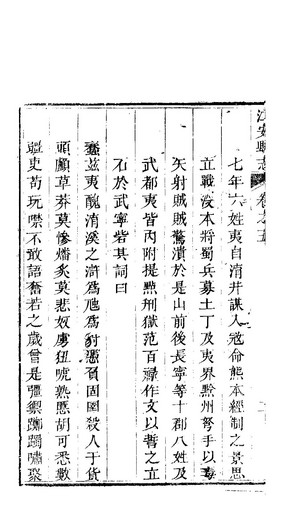 江安縣志 卷之五
七年六姓夷自淯井謀入寇命熊本經制之景思
立戰沒本將蜀兵募土丁及夷界黔州弩手以毒
矢射賊賊驚潰於是山前後長寧等十郡八姓及
武都夷皆內附提點刑獄范百祿作文以誓之立
石於武寧砦其詞曰
蠢茲夷醜淯溪之滸為虺為豺憑負固圉殺人于貨
頭顱草莽莫慘燔炙莫悲奴虜狃唬熟慝胡可悉數
疆吏苟玩噤不敢語奮若之歲曾是彊禦躑躅嘯聚